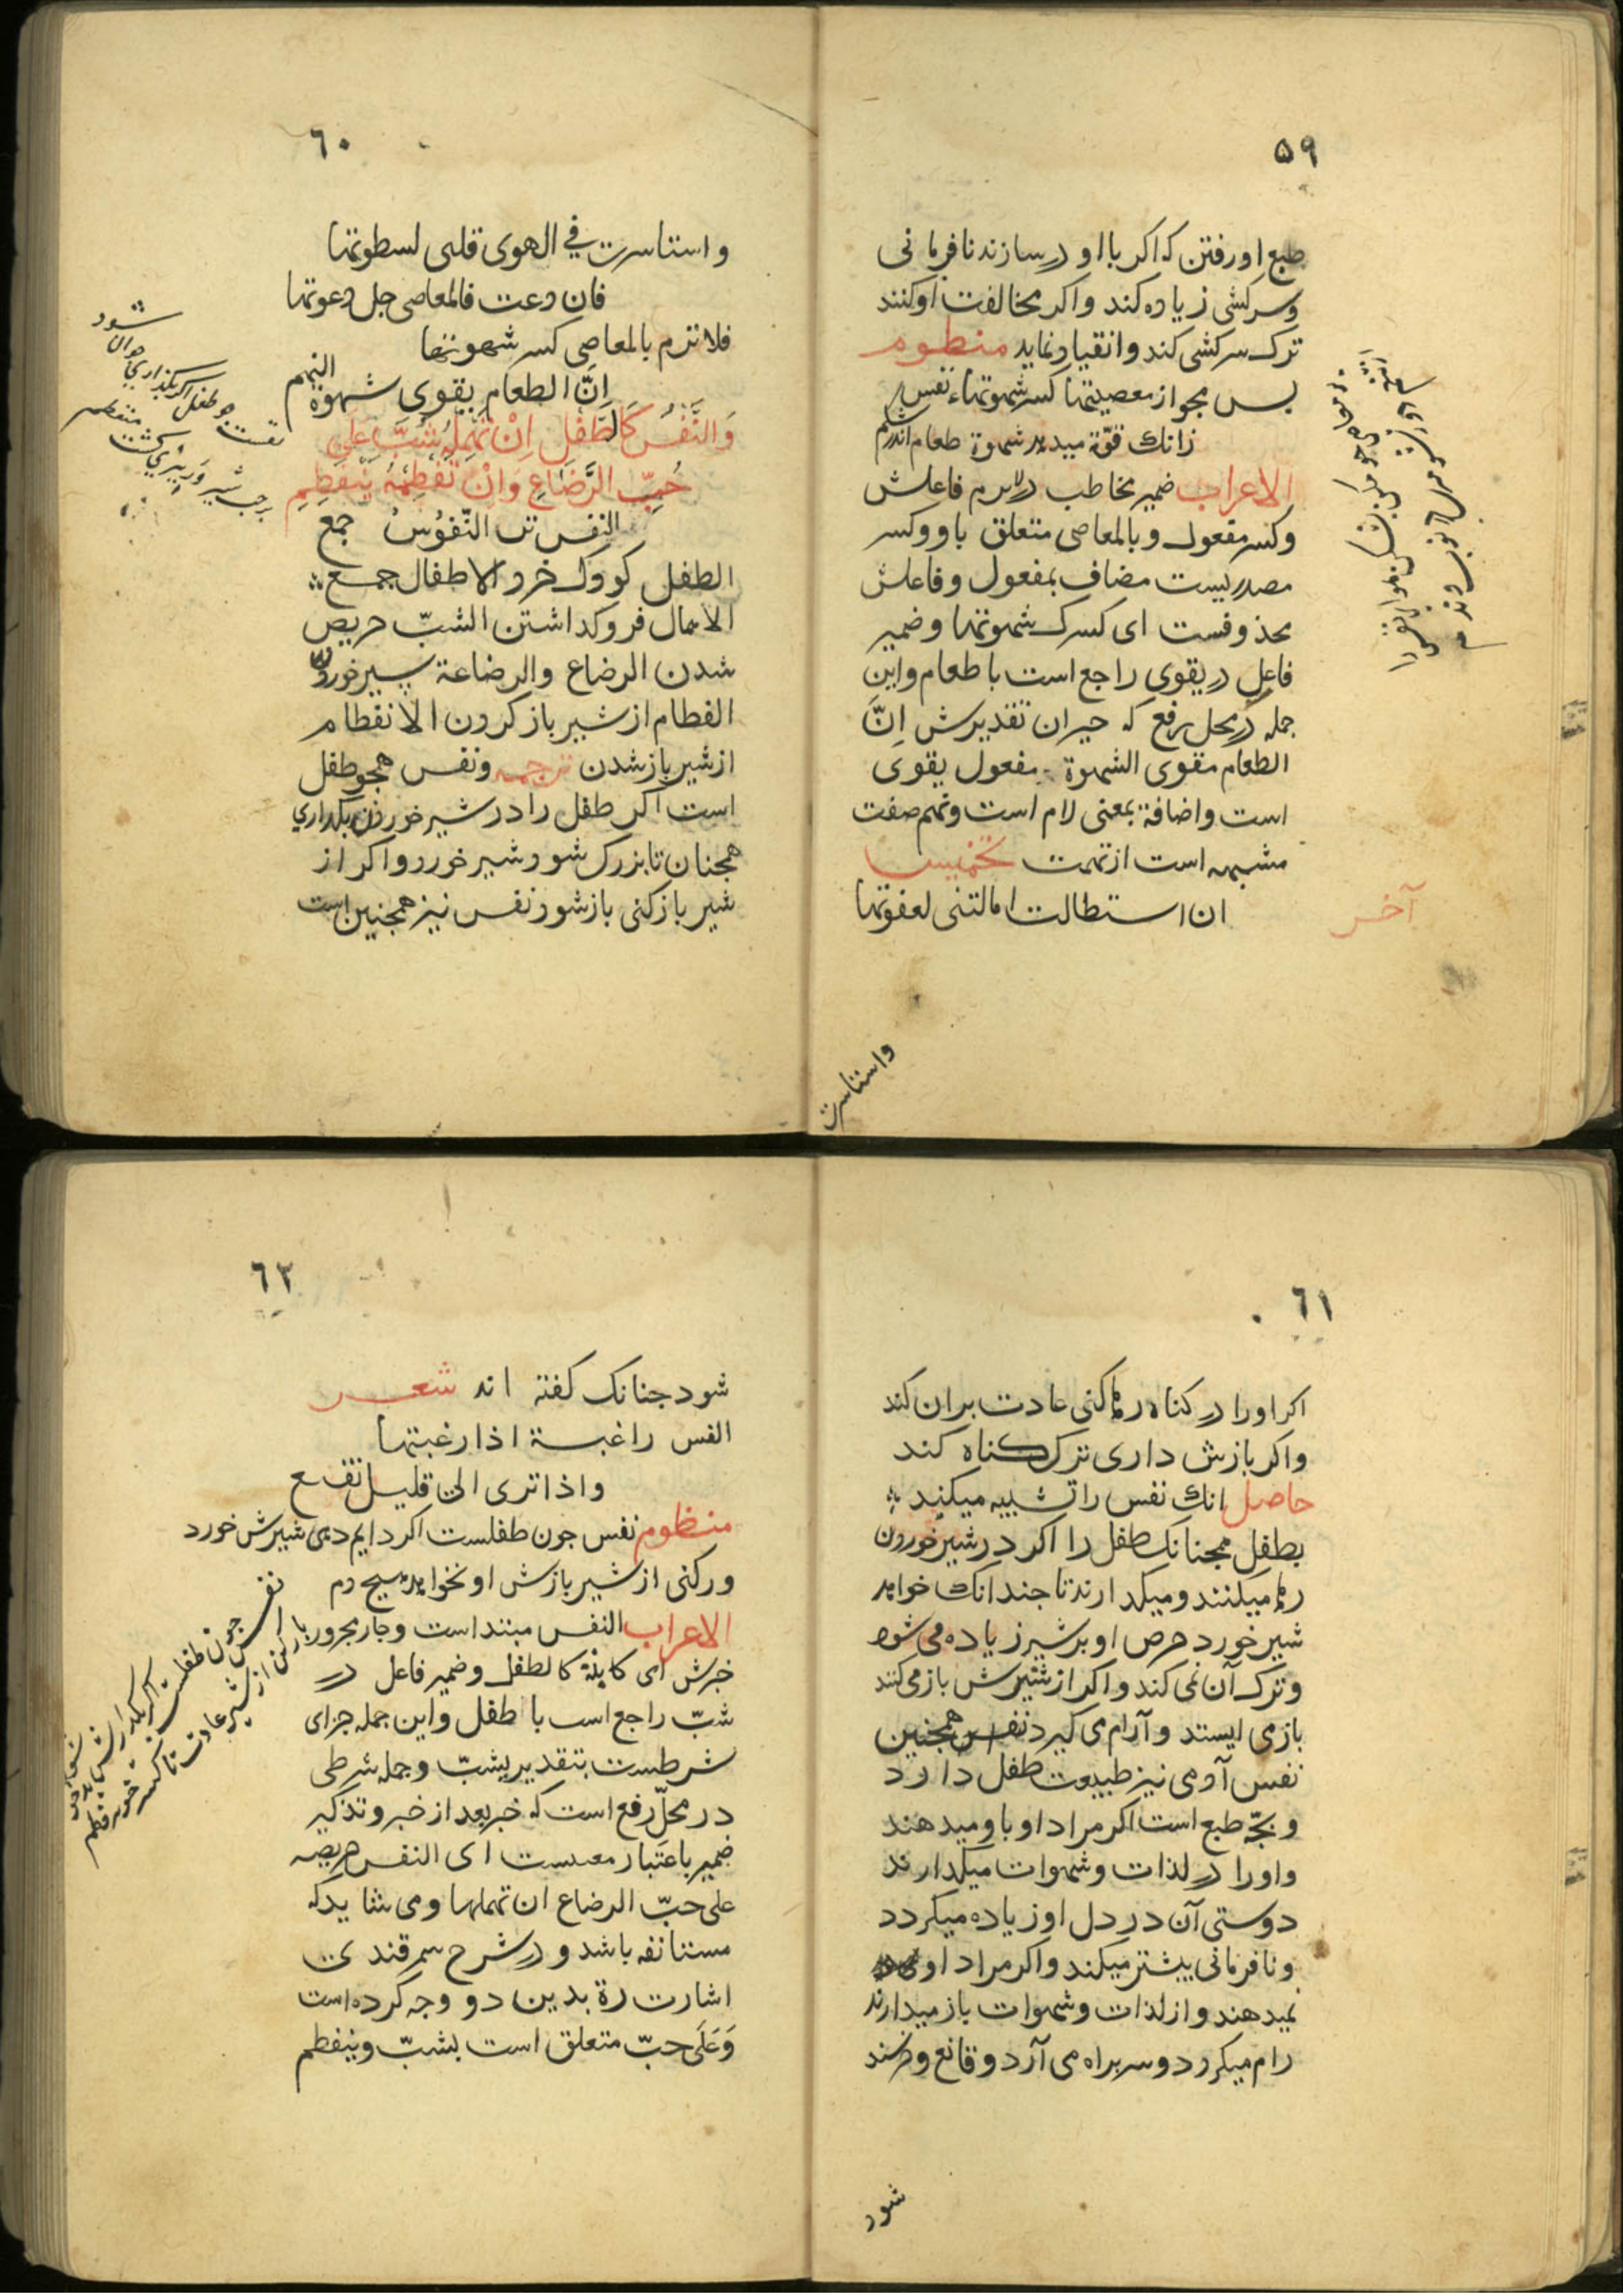 ۵۹
طبع او رفتن که اکر با او در سازند نافرمانی
وسرکشی زیاده کند واکر مخالفت او کنند
ترک سرکشی کند وانقیاد نماید منظوم
بس مجو از معصیتها کسر شهوتهاء نفس
زانک قوّة میدهد شهوة طعام اندر شکم
الاعراب ضمیر مخاطب در لاترم فاعلش
وکسر مفعول وبالمعاصی متعلق باو وکسر
مصدریست مضاف بمفعول وفاعلش
محذوفست ای کسرک شهوتها وضمیر
فاعل در یقوی راجع است با طعام واین
جمله در محل رفع که خبر ان تقدیرش اِنَّ
الطعام مقوی الشهوة مفعول یقوی
است واضافة بمعنی لام است ونهم صفت
مشبهه است از نهمت تخمیس
آخر
ان استطالت امالتنی لعفوتها
واستاسرت
٦٠
واستاسرت فی الهوی قلبی لسطوتها
فان دعت فالمعاصی جل دعوتها
فلا ترم بالمعاصی کسر شهوتها
اِنَّ الطعام یقوی شهوة النهم
وَالنَّفْسُ كَالطِّفْلِ اِنْ تُهْمِلْهُ شَبَّ عَلى
حُبِّ الرَّضَاعِ وَاِنْ تَفْطِمْهُ يَنْفَطِمِ
النفس تن النّفوُسُ جمع
الطفل کودک خرد الاطفال جمع
الاهمال فروکداشتن الشبّ حریص
شدن الرضاع والرضاعة شیر خوردن
الفطام از شیر باز کردن الانفطام
از شیر باز شدن ترجمه ونفس همجو طفل
است اکر طفل را در شیر خوردن بکداری
همجنان تا بزرک شود شیر خورد واکر از
شیر باز کنی باز شود نفس نیز همجنین است
٦١
اکر اورا در کناه رها کنی عادت بران کند
واکر بازش داری ترک کناه کند
حاصل انک نفس را تشبیه میکند
بطفل همجنانک طفل را اکر در شیر خوردن
رها میکنند ومیکدارند تا جندانک خواهد
شیر خورد حرص او بر شیر زیاده می شود
وترک آن نمی کند واکر از شیرش باز می کنند
باز می ایستد وآرام می کیرد نفس همجنین
نفس آدمی نیز طبیعت طفل دارد
وبجّه طبع است اکر مراد او باو میدهند
واورا در لذات وشهوات میکدارند
دوستی آن در دل او زیاده میکردد
ونافرمانی بیشتر میکند واکر مراد او
نمیدهند واز لذات وشهوات باز میدارند
رام میکردد وسر براه می آرد وقانع وخرسند
شود
٦٢
شود جنانک کفته اند شعر
النفس راغبة اذا رغبتها
واذا تری الی قلیل تقنع
منظوم نفس جون طفلست اکر دایم دهی شیرش خورد
ورکنی از شیر بازش او نخواهد هیج دم
الاعراب النفس مبتداست وجار مجرور
خبرش ای کاینة کالطفل وضمیر فاعل در
شبّ راجع است با طفل واین جمله جزای
شرطست بتقدیر یشبّ وجمله شرطی
در محلّ رفع است که خبر بعد از خبر وتذکیر
ضمیر باعتبار معنیست ای النفس حریصه
علی حبّ الرضاع ان تهملها ومی شاید که
مستانفه باشد ودر شرح سمرقندی
اشارت رة بدین دو وجه کرده است
وَعَلَی حبّ متعلق است بشبّ وینفطم